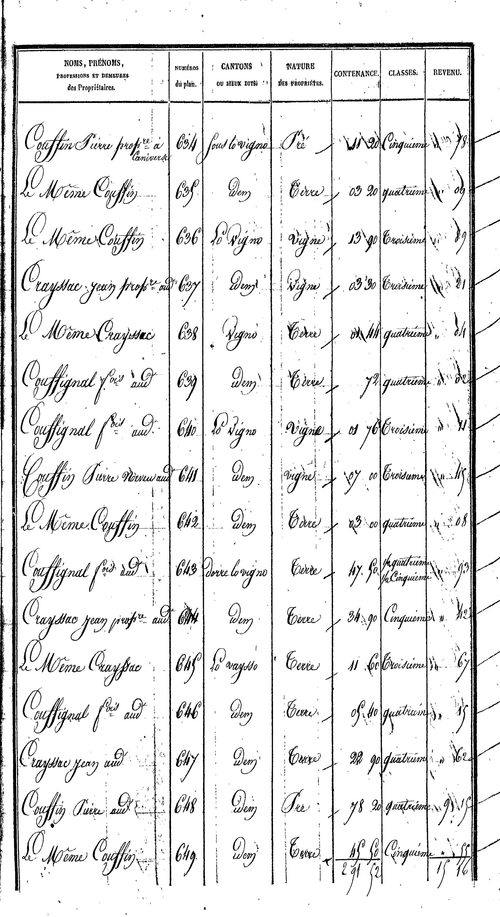 NOMS, PRÉNOMS, PROFESSIONS ET DEMEURES des Propriétaires. NUMÉROS du plan. CANTONS OU LIEUX DITS NATURE DES PROPRIÉTÉS. CONTENANCE. CLASSES. REVENU.
Couffin Pierre propre à 634 Sous lo vigno Pré 20 Cinquieme 78
Le Même Couffin 635 idem Terre 03 20 quatrieme 09
Le Même Couffin 636 Lo Vigno Vigne 13 90 Troisieme 89
Crayssac jean propre aud 637 idem Vigne 03 30 Troisieme 21
Le Même Crayssac 638 Vigno Terre 01 44 quatrieme 04
Couffignal fois aud 639 idem Terre 72 quatrieme 02
Couffignal fois aud 640 Lo Vigno Vigne 01 76 Troisieme 11
Couffin Pierre neveu aud 641 idem Vigne 07 00 Troisieme 45
Le Même Couffin 642 idem Terre 03 00 quatrieme 08
Couffignal fois aud 643 derre lo vigno Terre 47 50 quatrieme Cinquieme 93
Crayssac jean propre aud 644 idem Terre 34 90 Cinquieme 42
Le Même Crayssac 645 Lo vaysso Terre 11 60 Troisieme 67
Couffignal fois aud 646 idem Terre 05 40 quatrieme 15
Crayssac jean aud 647 idem Terre 22 90 quatrieme 62
Couffin Pierre aud 648 idem Pré 78 20 quatrieme 15
Le Même Couffin 649 idem Terre 45 50 Cinquieme 55
2 91 52 15 16